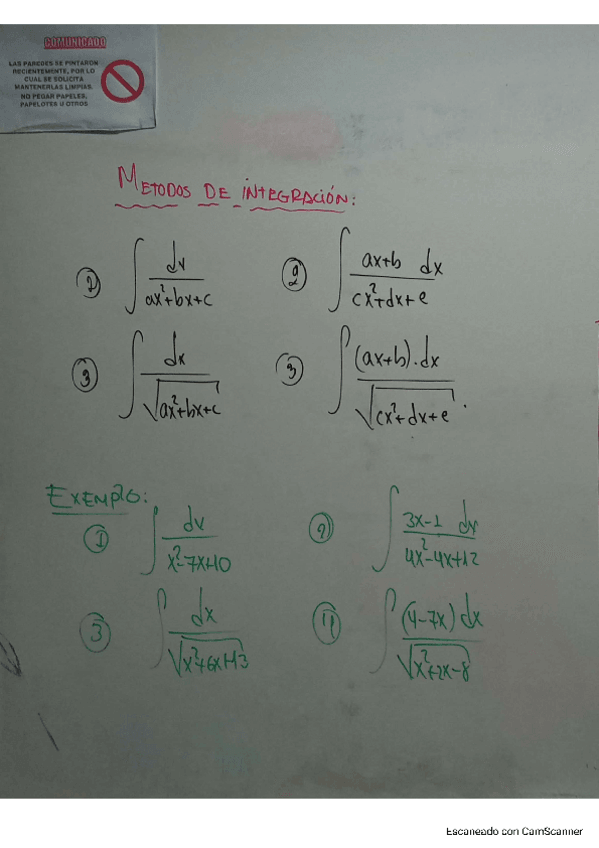 COMUNICADO
LAS PAREDES SE PINTARON
RECIENTEMENTE, POR LO
CUAL SE SOLICITA
MANTENERLAS LIMPIAS.
NO PEGAR PAPELES,
PAPELOTES U OTROS
METODOS DE INTEGRACIÓN:
① ∫ dx / (ax²+bx+c) ② ∫ (ax+b dx) / (cx²+dx+e)
③ ∫ dx / √(ax²+bx+c) ③ ∫ (ax+b).dx / √(cx²+dx+e).
EXEMPLO:
① ∫ dx / (x²-7x+10) ② ∫ (3x-1 dx) / (4x²-4x+12)
③ ∫ dx / √(x²+6x+13) ④ ∫ (4-7x) dx / √(x²+2x-8)
Escaneado con CamScanner